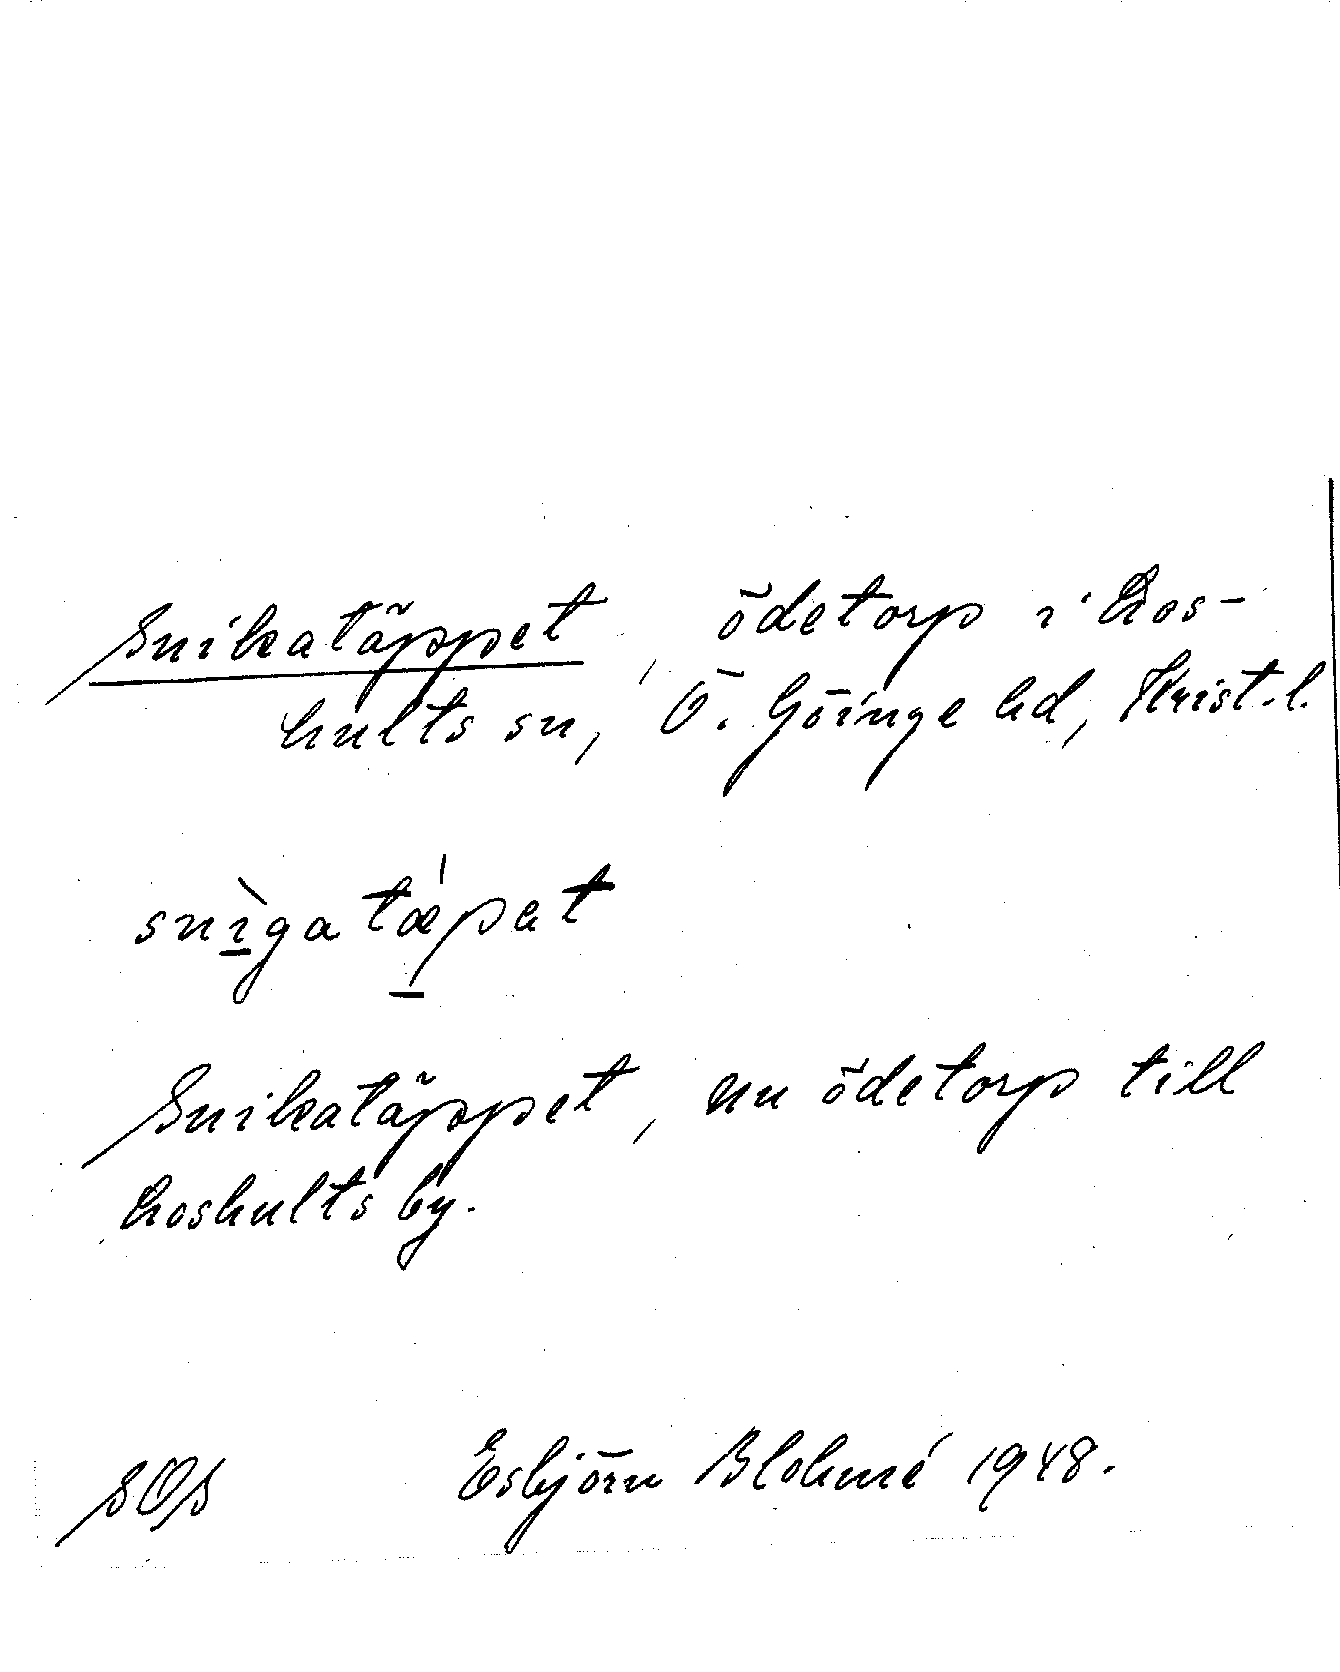 Snikatäppet, ödetorp i Los-
hults sn, Ö. Göinge hd, Krist. l.
snìgatǽpat
Snikatäppet, nu ödetorp till
Loshults by.
SOS Esbjörn Blohmé 1948.